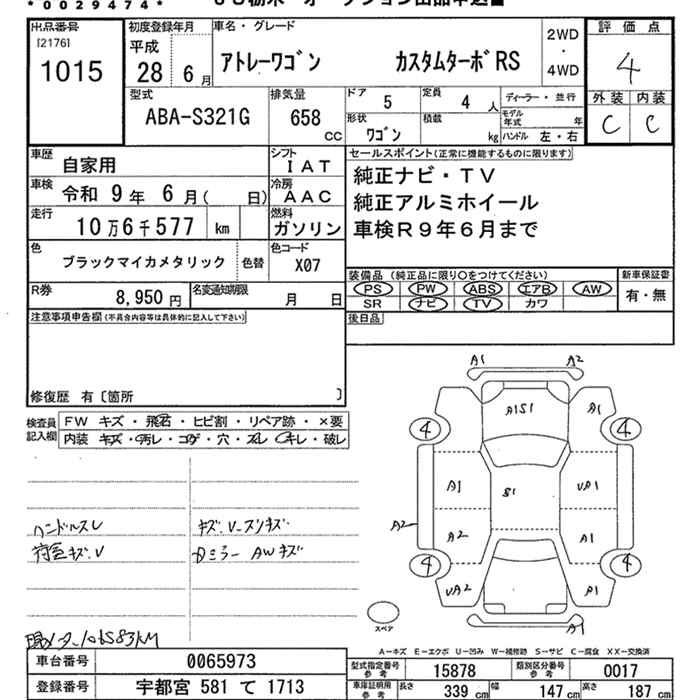 * 0029474 *
出品番号
[2176]
1015
初度登録年月
平成
28 6 月
車名・グレード
アトレーワゴン カスタムターボRS
2WD
・
4WD
評価点
4
外装 内装
C C
型式
ABA-S321G
排気量
658
CC
ドア 5
定員 4 人
形状 ワゴン
積載 kg
ディーラー・並行
モデル年式 年
ハンドル 左・右
車歴 自家用
シフト IAT
車検 令和 9 年 6 月( 日)
冷房 AAC
走行 10万6千577 km
燃料 ガソリン
色 ブラックマイカメタリック
色替
色コード X07
R券 8,950 円
名変通知期限 月 日
セールスポイント(正常に機能するものに限ります)
純正ナビ・TV
純正アルミホイール
車検R9年6月まで
装備品 (純正品に限り○をつけてください)
PS PW ABS エアB AW
SR ナビ TV カワ
新車保証書
有・無
後日品
注意事項申告欄(不具合内容等は具体的に記入して下さい)
修復歴 有〔箇所 〕
検査員記入欄
FW キズ・飛石・ヒビ割・リペア跡・×要
内装 キズ・汚レ・コゲ・穴・スレ・キレ・破レ
ハンドルスレ
キズ.V-スリキズ
荷室キズ.V
ミラー AWキズ
A1 A2
A1S1
A1
4 4
A1 S1 UA1
A2
A2 A1
4 4
UA2 A1
A1
スペア
A-キズ E-エクボ U-凹み W-補修跡 S-サビ C-腐食 XX-交換済
車台番号 0065973
登録番号 宇都宮 581 て 1713
型式指定番号 参考 15878
類別区分番号 参考 0017
車庫証明用 参考
長さ 339 cm
幅 147 cm
高さ 187 cm